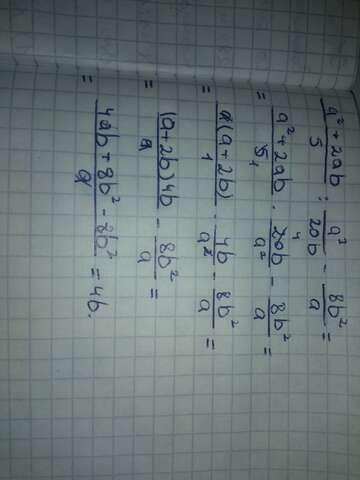 (a² + 2ab)/5 : a²/20b - 8b²/a =
= (a² + 2ab)/5 · 20b/a² - 8b²/a =
= a(a + 2b)/1 · 4b/a² - 8b²/a =
= (a + 2b)4b/a - 8b²/a =
= (4ab + 8b² - 8b²)/a = 4b.